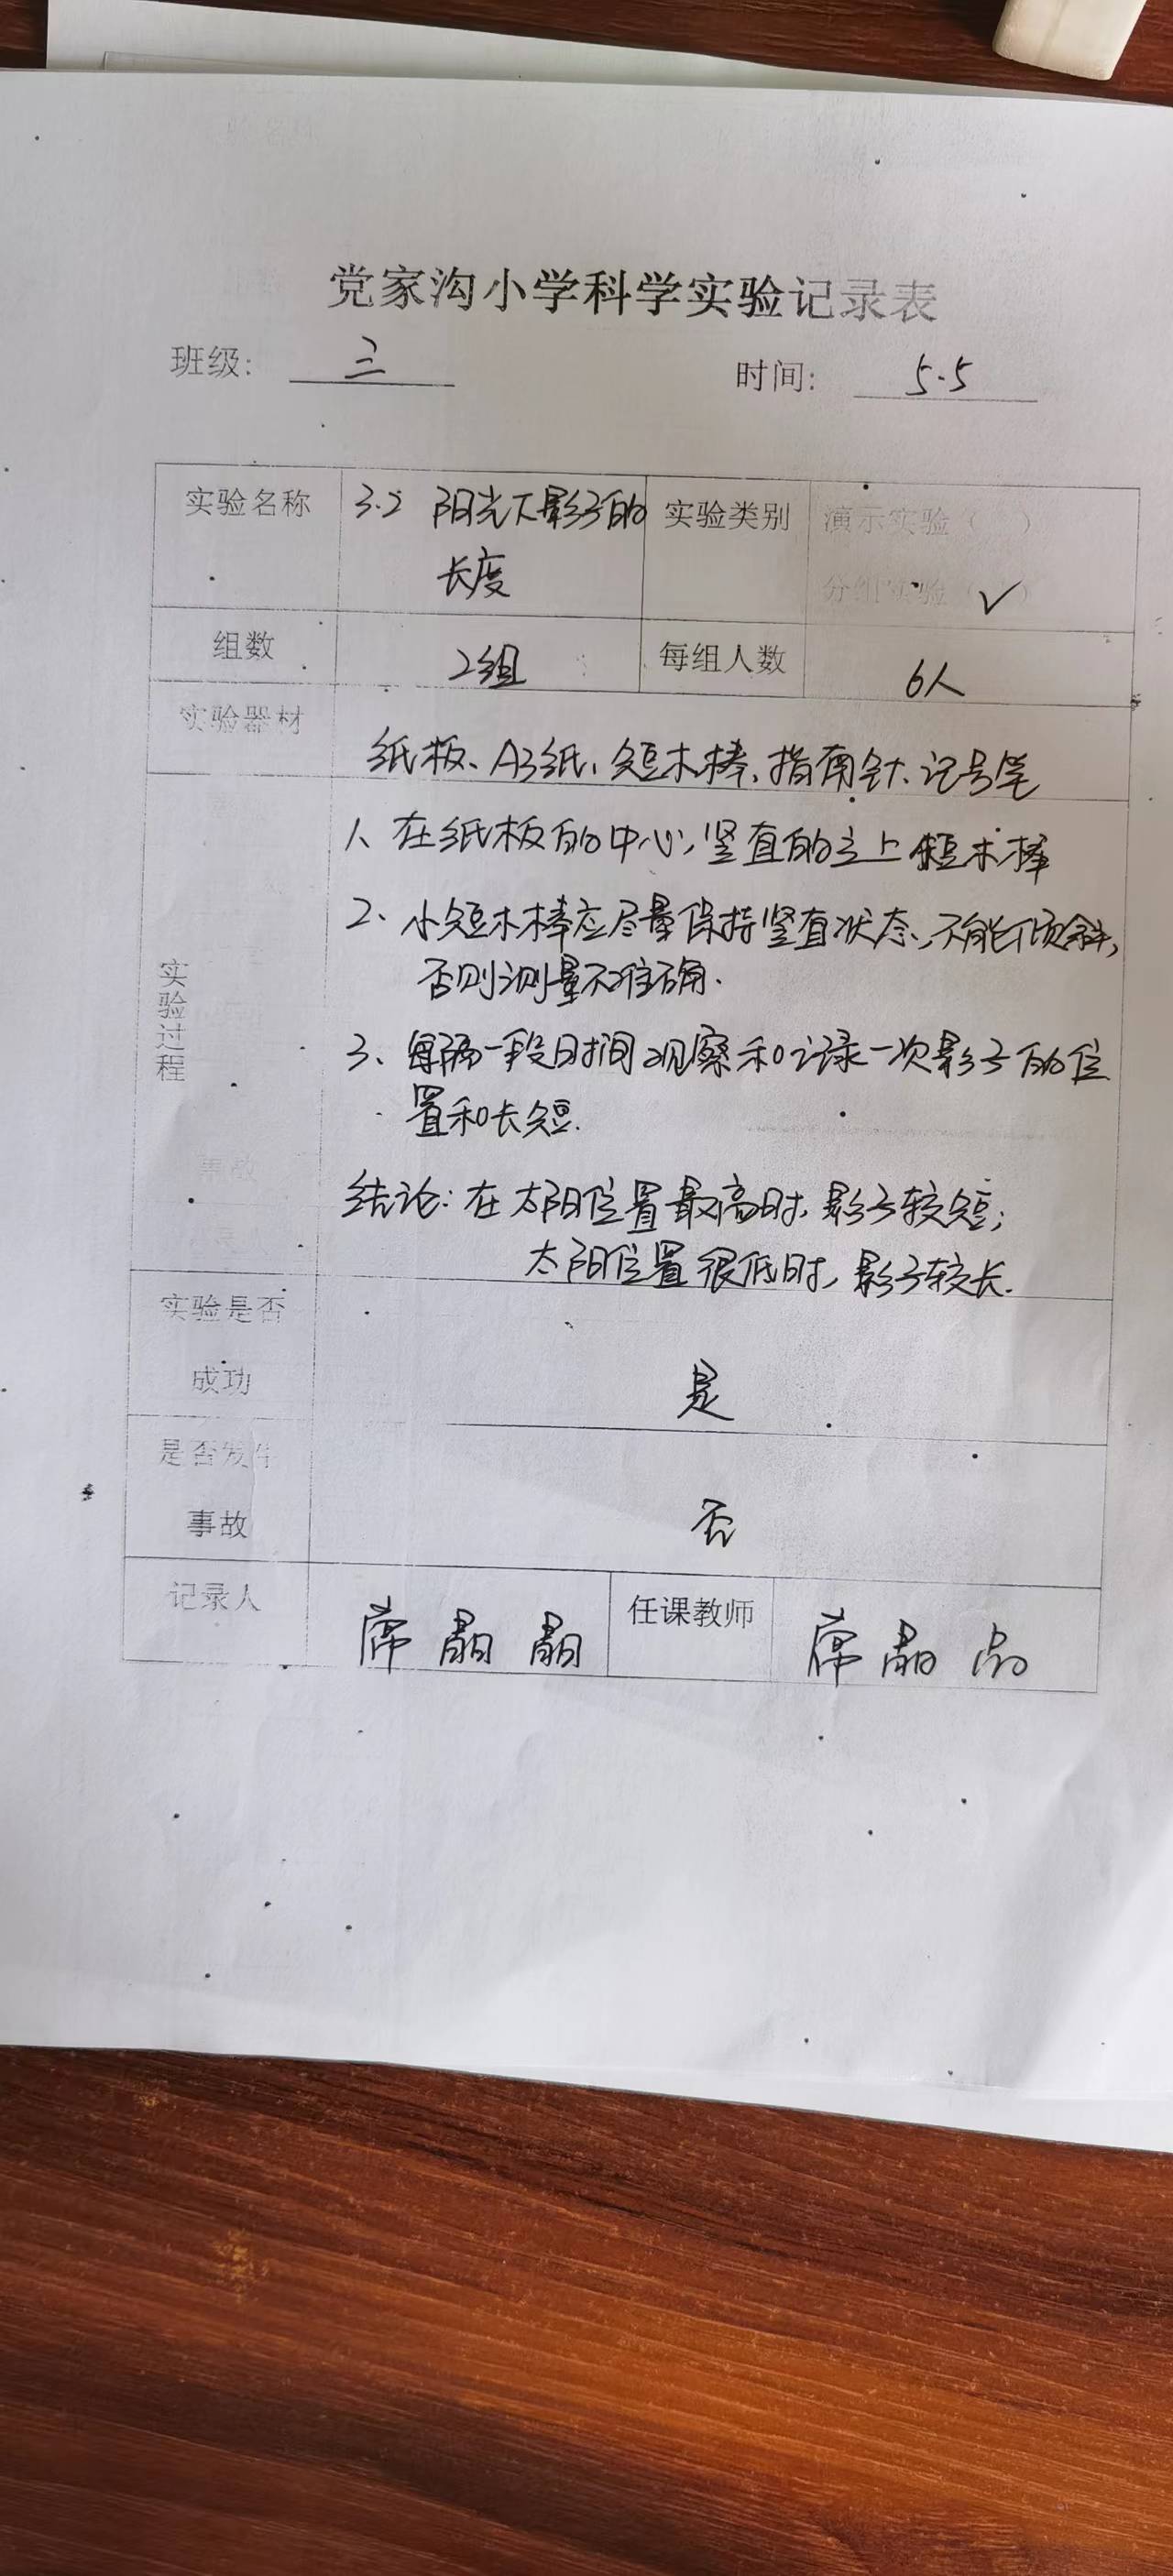 党家沟小学科学实验记录表
班级: 三 时间: 5.5
实验名称 3.2 阳光下影子的 实验类别 演示实验( )
长度 分组实验(√)
组数 2组 每组人数 6人
实验器材
纸板、A3纸、短木棒、指南针、记号笔
1、在纸板的中心,竖直的立上短木棒
2、小短木棒应尽量保持竖直状态,不能倾斜,
否则测量不准确.
实验过程
3、每隔一段时间观察和记录一次影子的位
置和长短.
结论:在太阳位置最高时,影子较短;
太阳位置很低时,影子较长.
实验是否
成功 是
是否发生
事故 否
记录人 席晶晶 任课教师 席晶晶